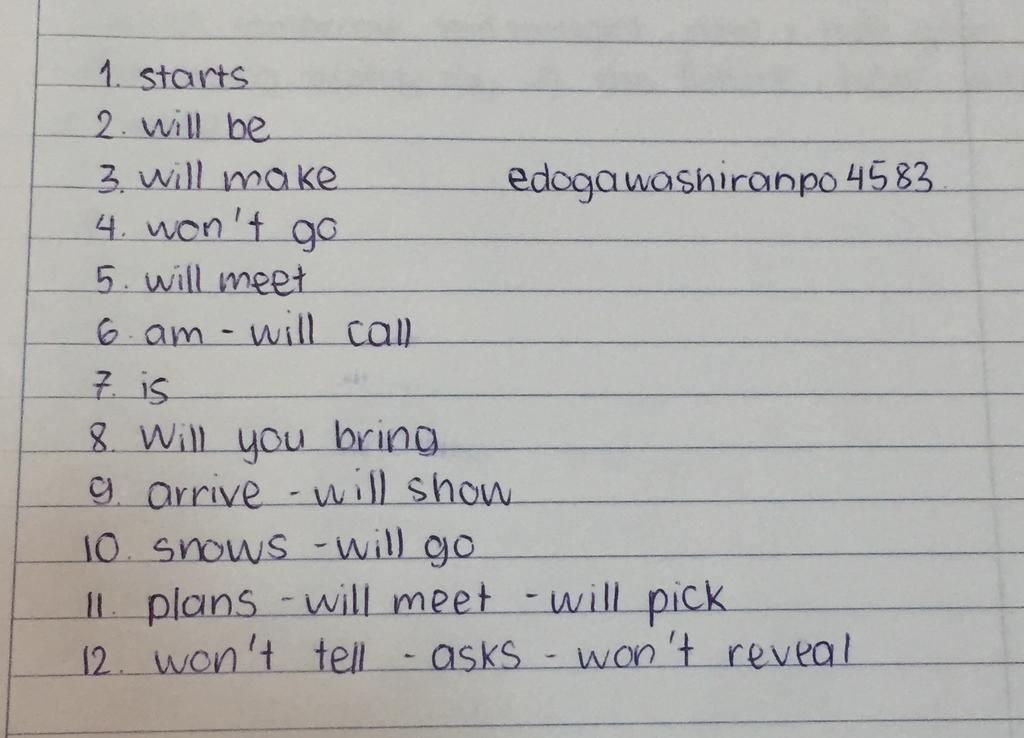 1. starts
2. will be
3. will make edogawashiranpo4583
4. won't go
5. will meet
6. am - will call
7. is
8. Will you bring
9. arrive - will show
10. snows - will go
11. plans - will meet - will pick
12. won't tell - asks - won't reveal